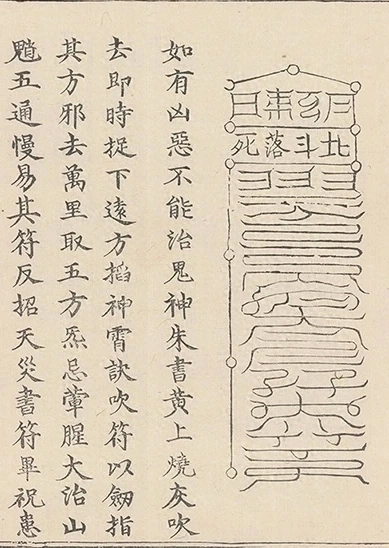 北斗落死
如有凶惡不能治鬼神朱書黄上燒灰吹
去即時捉下遠方搯神霄訣吹符以劔指
其方邪去萬里取五方炁忌葷腥大治山
魈五通慢易其符反招天災書符畢祝患